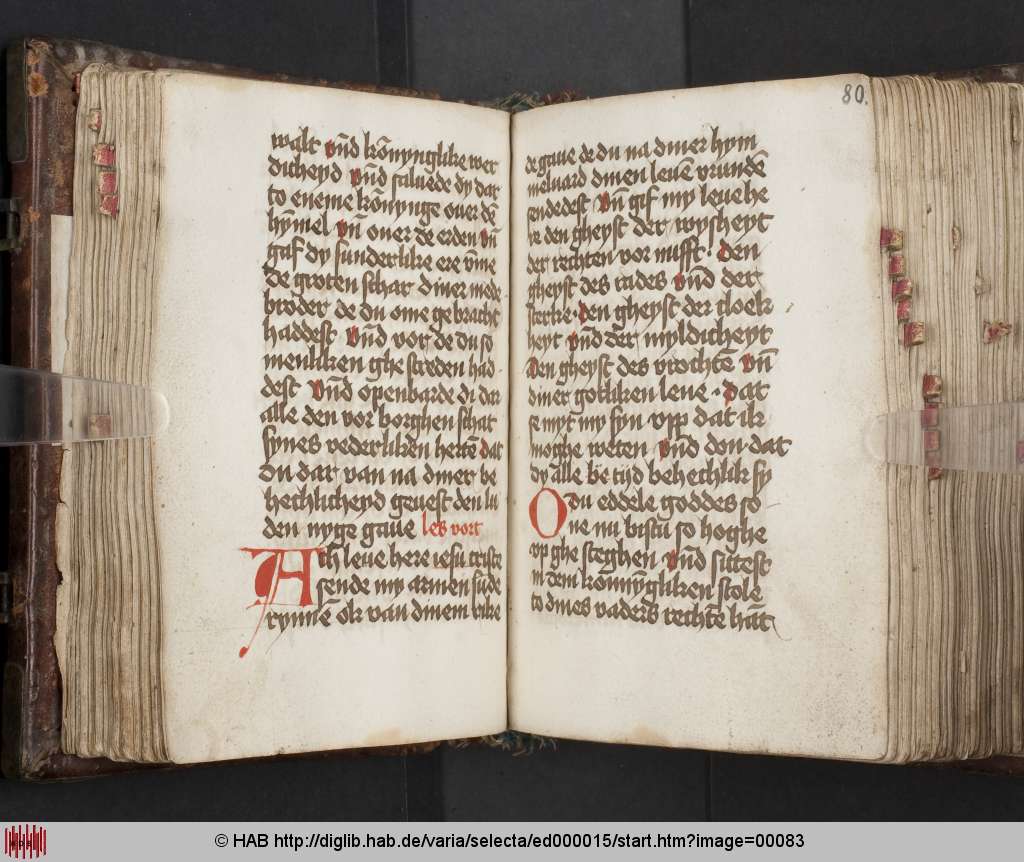 walt vn̄d kōnynglike wer
dicheyd vn̄d saluede dy dar
to eneme kōnynge ouer dē
hȳmel vn̄ ouer de erden vn̄
gaf dy sunderlike ere vm̄e
de groten schar diner mede
broder de du ome gebracht
haddest vn̄d vor de du so
menliken ghestreden had
dest vn̄d openbarde di dar
alle den vor borghen schat
synes vederliken hertē dat
du dar van na diner be
hechlicheyd geuest den lu
den myge gaue les vort
Ach leue here iesu criste
sende my armen sūde
rynnē ok van dinem rike
80.
de gaue de du na diner hym
meluard dinen leuē vrundē
sendedest vn̄ gif my leuehe
re den gheyst der wysheyt
der rechten vor nufft den
gheyst des rades vn̄d der
sterke den gheyst der cloek
heyt vn̄d der myldicheyt
den gheyst des vrochtē vn̄
diner gotliken leue dat
se myt my syn vpp dat ik
moghe weten vn̄d don dat
dy alle tijd behechlik sy
O du eddele goddes so
ne nu bistu so hoghe
vp ghe steghen vn̄d sittest
in dem kōnnȳgliken stole
to dines vaders rechtē hāt
© HAB http://diglib.hab.de/varia/selecta/ed000015/start.htm?image=00083